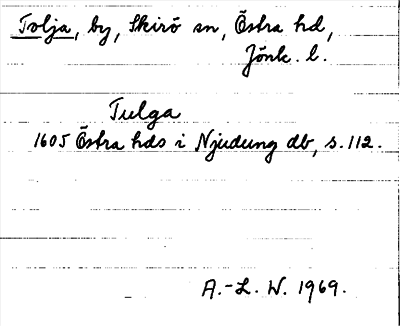 Tolja, by, Skirö sn, Östra hd,
Jönk. l.
Tulga
1605 Östra hds i Njudung db, s. 112.
A.-L. W. 1969.